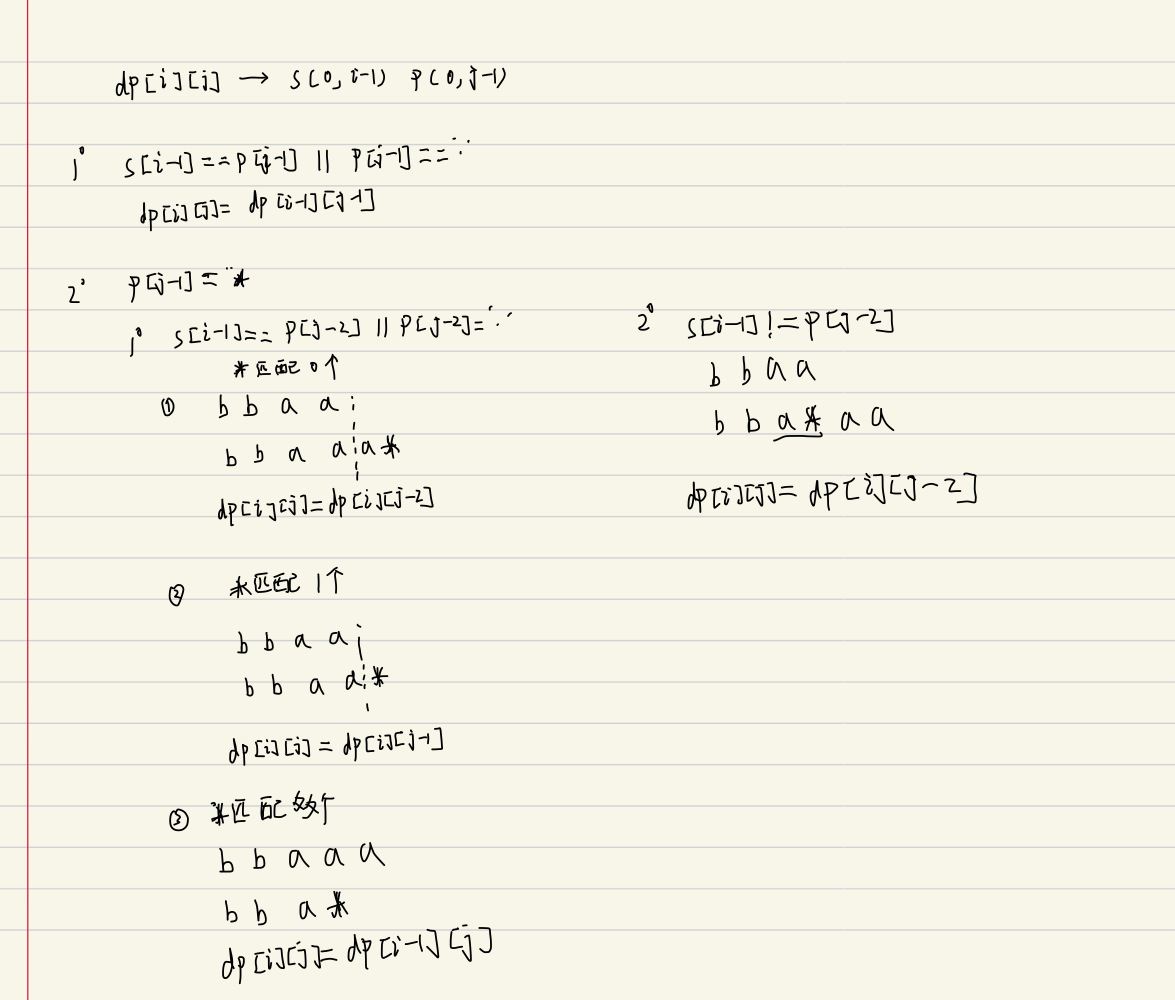 dp[i][j] → s(0, i-1) p(0, j-1)
1° s[i-1]==p[j-1] || p[j-1]=='.'
dp[i][j]= dp[i-1][j-1]
2° p[j-1]='*
1° s[i-1]== p[j-2] || p[j-2]='.'
*匹配0个
① b b a a
b b a a a*
dp[i][j]=dp[i][j-2]
② *匹配1个
b b a a
b b a a *
dp[i][j]=dp[i][j-1]
③ *匹配多个
b b a a a
b b a *
dp[i][j]=dp[i-1][j]
2° s[i-1]!=p[j-2]
b b a a
b b a* a a
dp[i][j]= dp[i][j-2]